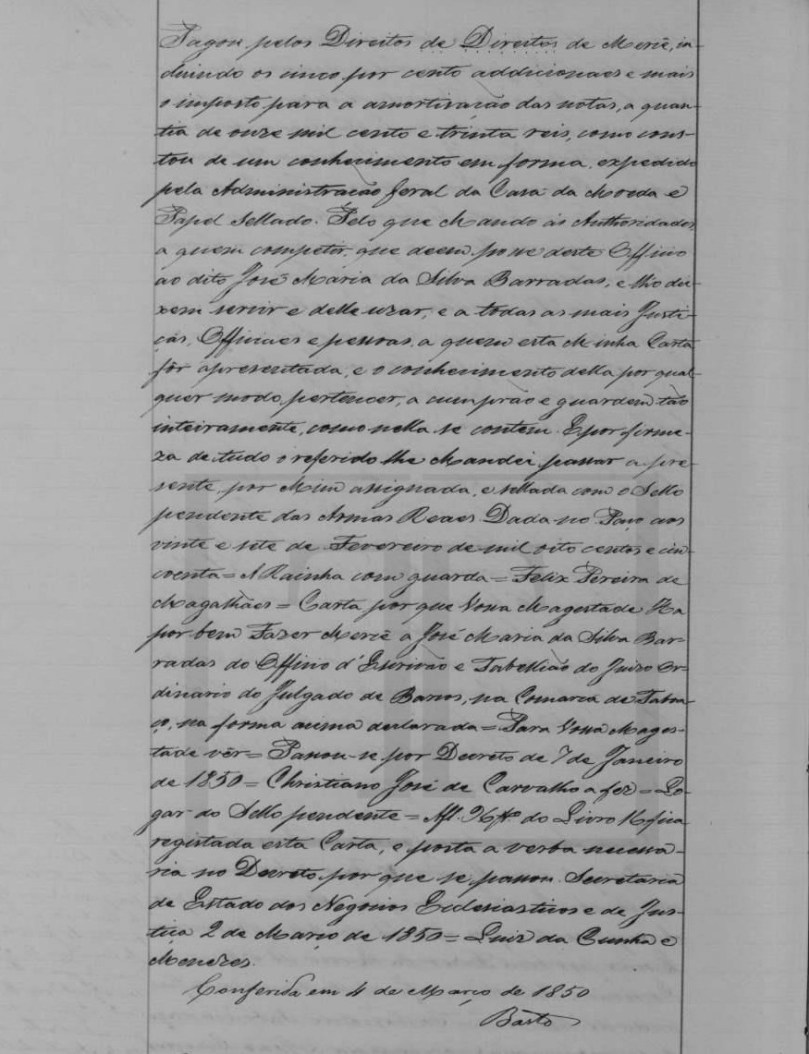 Pagou pelos Direitos de Direitos de Mercê, in-
cluindo os cinco por cento addicionaes e mais
o imposto para a amortisação das notas, a quan-
tia de onze mil cento e trinta reis, como cons-
tou de um conhecimento em forma, expedido
pela Administração Geral da Casa da Moeda e
Papel Sellado. Pelo que Mando ás Authoridades,
a quem competir, que deem posse deste Officio
ao dito José Maria da Silva Barradas, e lho dei-
xem servir e delle uzar, e a todas as mais Justi-
ças, Officiaes e pessoas, a quem esta Minha Carta
fôr apresentada, e o conhecimento della por qual-
quer modo pertencer, a cumprão e guardem tão
inteiramente, como nella se contem. E por firme-
za de tudo o referido lhe Mandei passar a pre-
sente, por Mim assignada, e sellada com o Sello
pendente das Armas Reaes. Dada no Paço aos
vinte e sete de Fevereiro de mil oito centos e cin-
coenta = A Rainha com guarda = Felix Pereira de
Magalhães = Carta por que Vossa Magestade Ha
por bem Fazer Mercê a José Maria da Silva Bar-
radas do Officio d'Escrivão e Tabellião do Juizo Or-
dinario do Julgado de Barros, na Comarca de Tabua-
ço, na forma acima declarada = Para Vossa Mages-
tade vêr = Passou-se por Decreto de 7 de Janeiro
de 1850 = Christiano José de Carvalho a fez = Lo-
gar do Sello pendente = Afl. do Livro fica
registada esta Carta, e posta a verba necessa-
ria no Decreto por que se passou. Secretaria
de Estado dos Negocios Ecclesiasticos e de Jus-
tiça 2 de Março de 1850 = Luiz da Cunha e
Menezes.
Conferida em 4 de Março de 1850
Basto